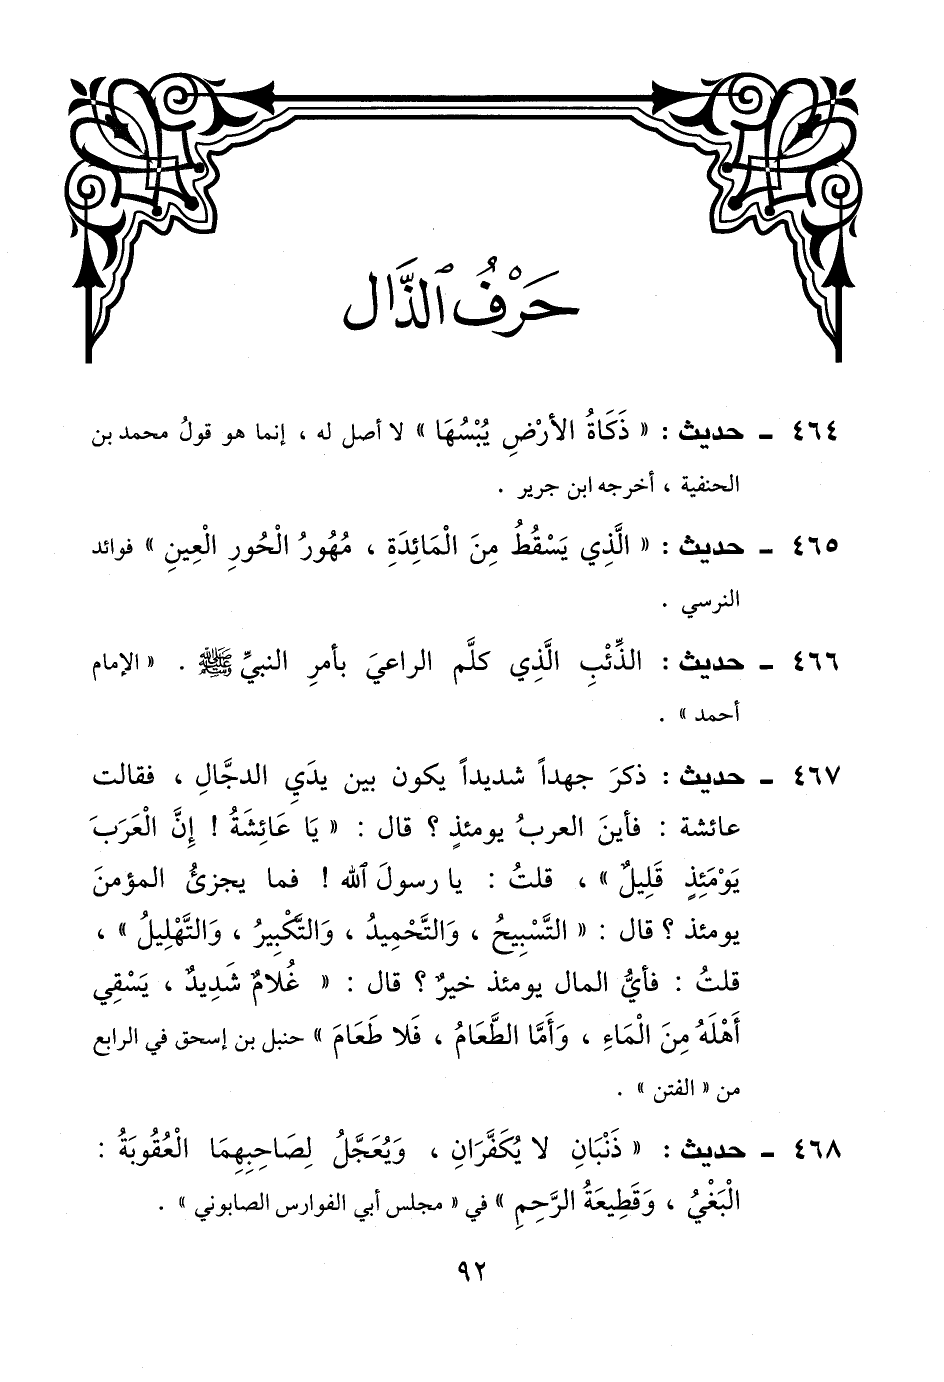 حَرْفُ ٱلذَّال
٤٦٤ - حديث : « ذَكَاةُ الأرْضِ يُبْسُهَا » لا أصل له ، إنما هو قولُ محمد بن
الحنفية ، أخرجه ابن جرير .
٤٦٥ - حديث : « الَّذِي يَسْقُطُ مِنَ الْمَائِدَةِ ، مُهُورُ الْحُورِ الْعِينِ » فوائد
النرسي .
٤٦٦ - حديث : الذِّئْبِ الَّذِي كلَّم الراعيَ بأمرِ النبيِّ ﷺ . « الإمام
أحمد » .
٤٦٧ - حديث : ذكرَ جهداً شديداً يكون بين يدَيِ الدجَّالِ ، فقالت
عائشة : فأينَ العربُ يومئذٍ ؟ قال : « يَا عَائِشَةُ ! إِنَّ الْعَرَبَ
يَوْمَئِذٍ قَلِيلٌ » ، قلتُ : يا رسولَ ٱلله ! فما يجزئُ المؤمنَ
يومئذ ؟ قال : « التَّسْبِيحُ ، وَالتَّحْمِيدُ ، وَالتَّكْبِيرُ ، وَالتَّهْلِيلُ » ،
قلتُ : فأيُّ المال يومئذ خيرٌ ؟ قال : « غُلامٌ شَدِيدٌ ، يَسْقِي
أَهْلَهُ مِنَ الْمَاءِ ، وَأَمَّا الطَّعَامُ ، فَلا طَعَامَ » حنبل بن إسحق في الرابع
من « الفتن » .
٤٦٨ - حديث : « ذَنْبَانِ لا يُكَفَّرَانِ ، وَيُعَجَّلُ لِصَاحِبِهِمَا الْعُقُوبَةُ :
الْبَغْيُ ، وَقَطِيعَةُ الرَّحِمِ » في « مجلس أبي الفوارس الصابوني » .
٩٢